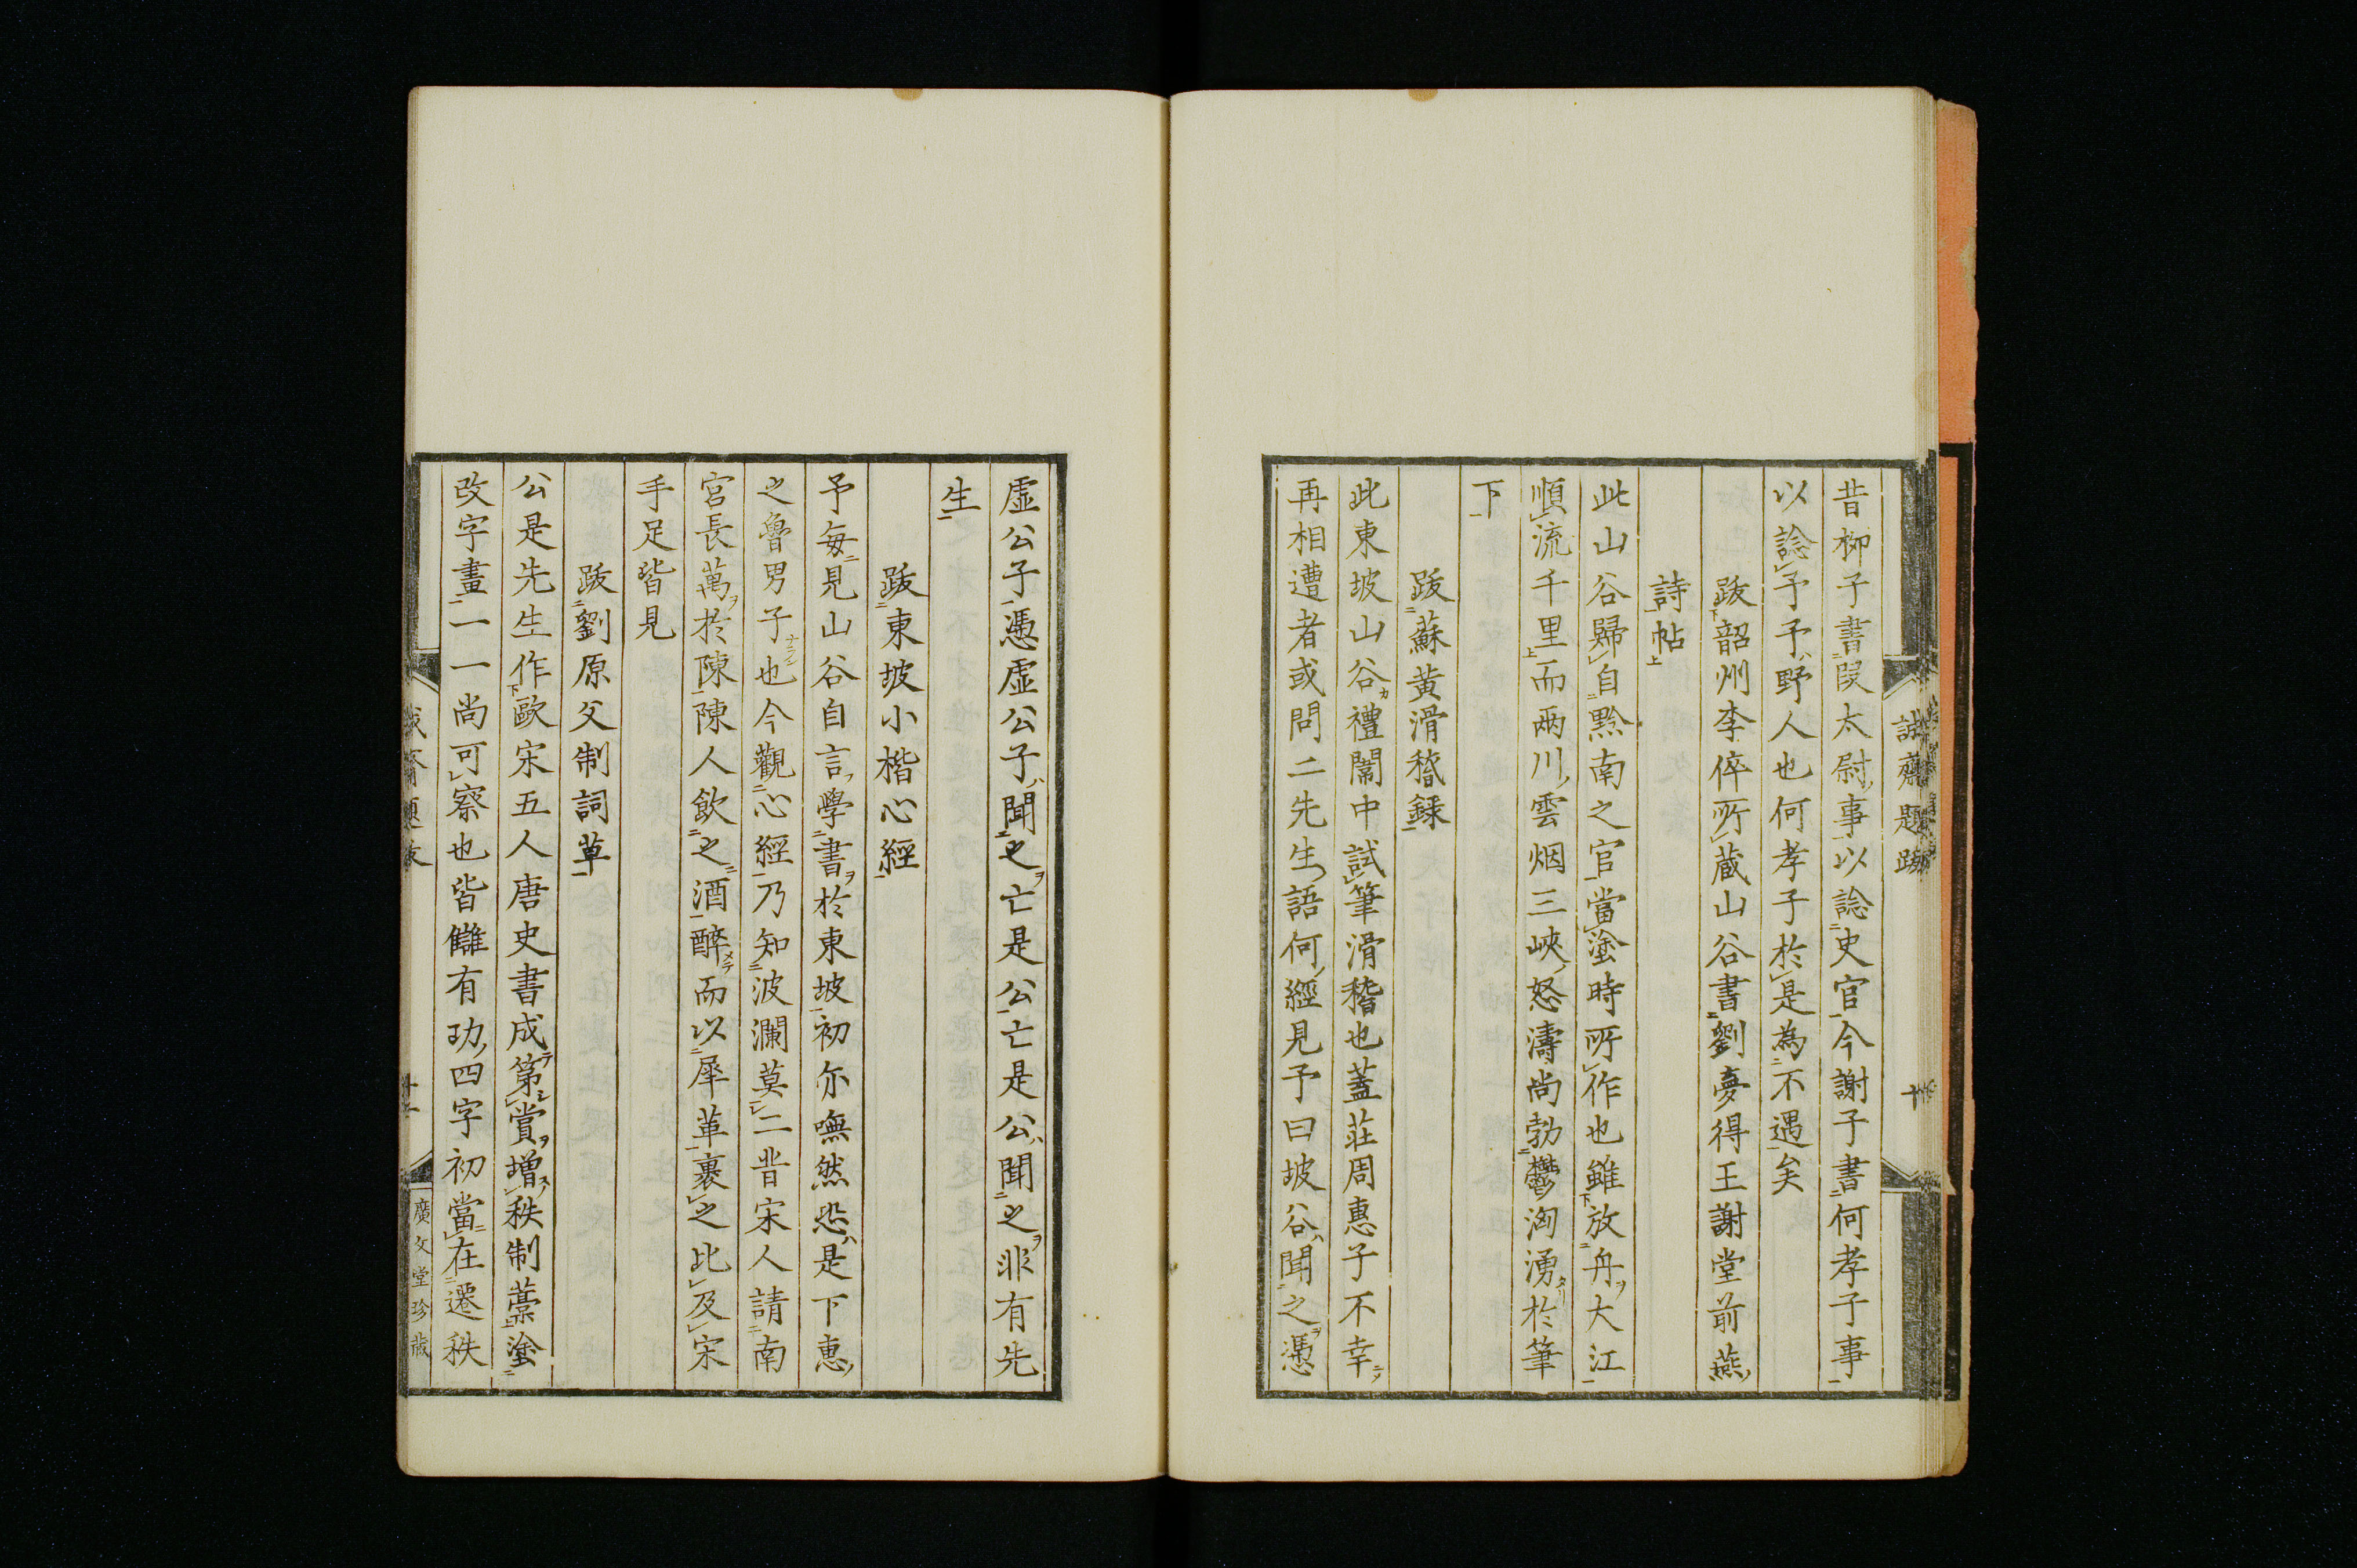 誠齋題跋
十
昔柳子書段太尉事以諗史官今謝子書何孝子事
以諗予予野人也何孝子於是為不遇矣
跋韶州李倅所蔵山谷書劉夢得王謝堂前燕
詩帖
此山谷歸自黔南之官當塗時所作也雖放舟大江
順流千里而兩川雲烟三峽怒濤尚勃鬱洶湧於筆
下
跋蘇黄滑稽録
此東坡山谷禮闈中試筆滑稽也蓋莊周惠子不幸
再相遭者或問二先生語何經見予曰坡谷聞之憑
虛公子憑虛公子聞之亡是公亡是公聞之非有先
生
跋東坡小楷心經
予每見山谷自言學書於東坡初亦嘸然恐是下惠
之魯男子也今觀心經乃知波瀾莫二昔宋人請南
宮長萬於陳陳人飲之酒醉而以犀革裹之比及宋
手足皆見
跋劉原父制詞草
公是先生作歐宋五人唐史書成第賞增秩制藁塗
改字畫一一尚可察也皆讎有功四字初當在遷秩
廣文堂珍藏